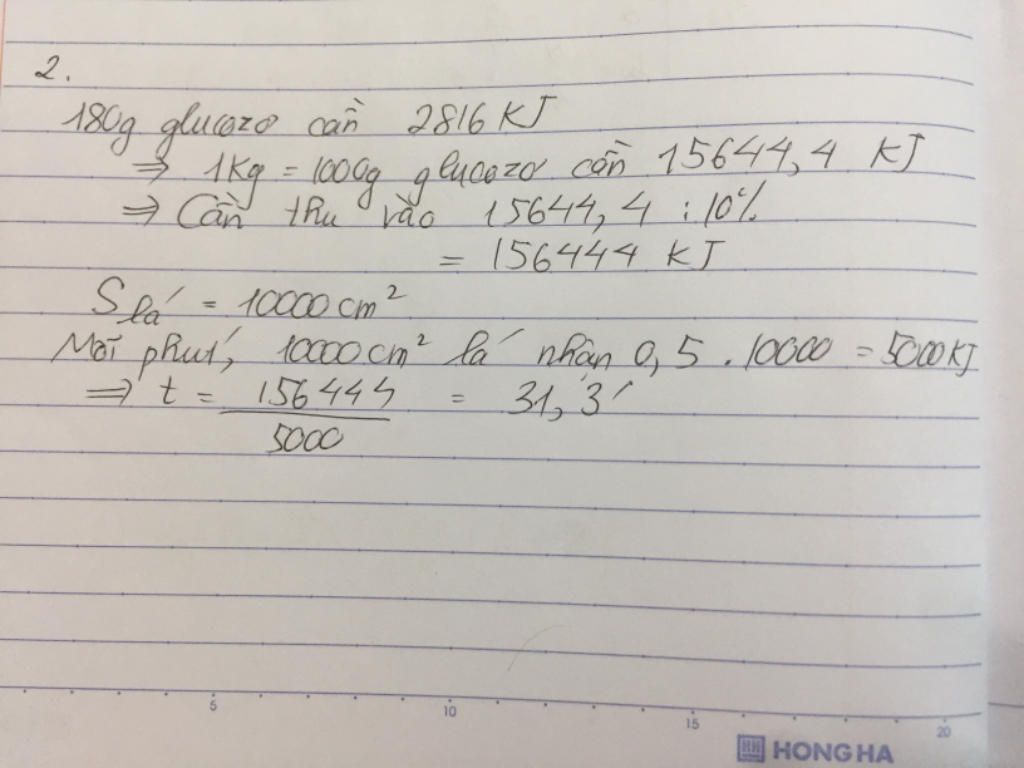 2.
180g glucozo cần 2816 KJ
⇒ 1Kg = 1000g glucozo cần 15644,4 KJ
⇒ Cần thu vào 15644,4 : 10%
= 156444 KJ
S lá = 10000 cm²
Mỗi phút, 10000 cm² lá nhận 0,5 . 10000 = 5000 KJ
⇒ t = 156444 / 5000 = 31,3'
5 10 15 20
HH HONG HA